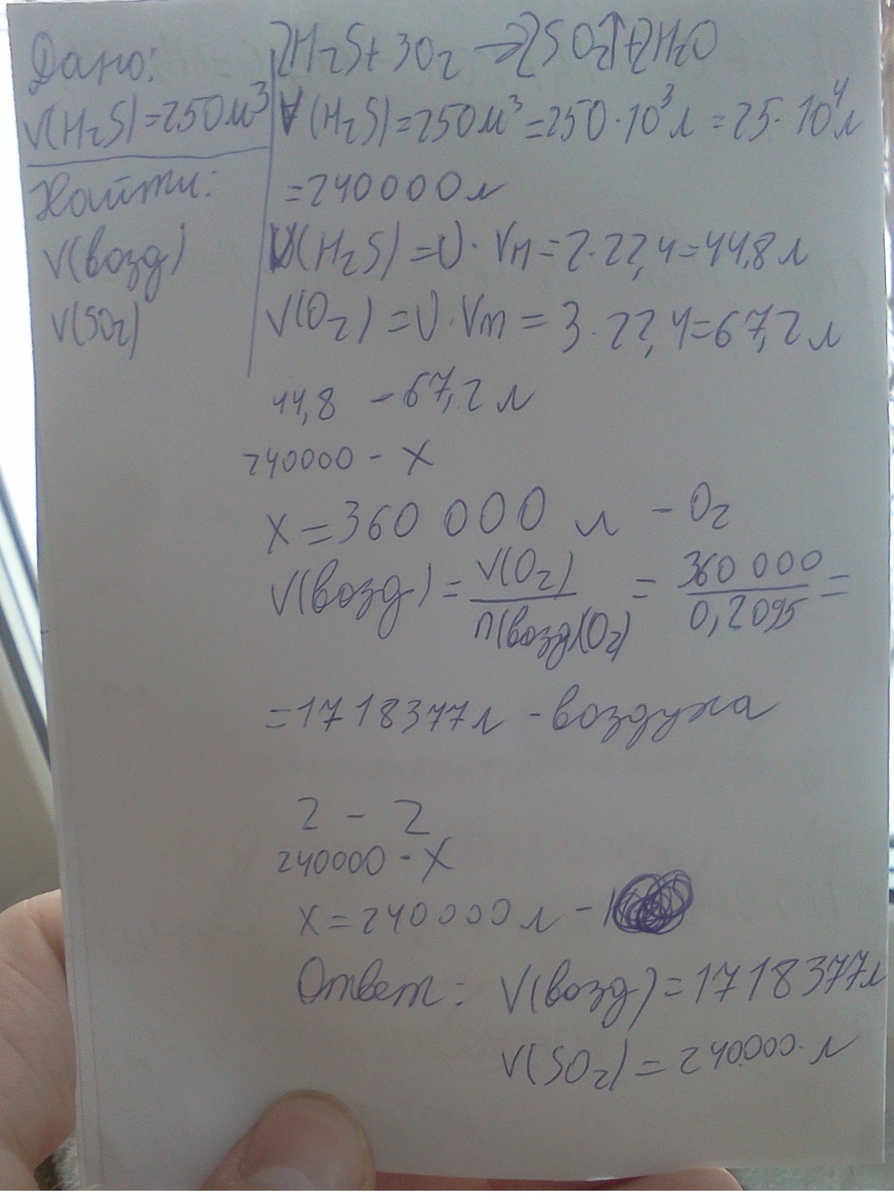 Дано:
V(H₂S)=250м³
Найти:
V(возд)
V(SO₂)
2H₂S+3O₂→2SO₂↑+2H₂O
V(H₂S)=250м³=250·10³л=25·10⁴л
=240000л
V(H₂S)=υ·Vm=2·22,4=44,8л
V(O₂)=υ·Vm=3·22,4=67,2л
44,8 - 67,2л
240000 - x
x=360 000 л - O₂
V(возд)=V(O₂)/П(возд)(O₂)=360 000/0,2095=
=1718377л - воздуха
2 - 2
240000 - x
x=240000л -
Ответ: V(возд)=1718377л
V(SO₂)=240000 л